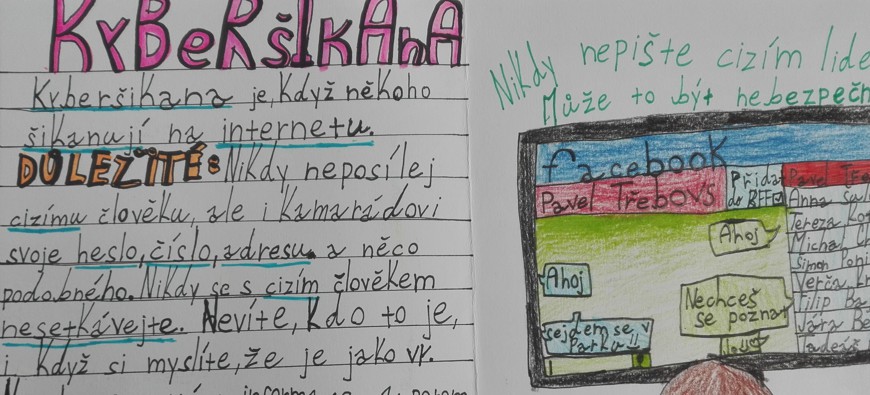 KYBERŠIKANA
Kyberšikana je, když někoho
šikanují na internetu.
DŮLEŽITÉ: Nikdy neposílej
cizímu člověku, ale i kamarádovi
svoje heslo, číslo, adresu. a něco
podobného. Nikdy se s cizím člověkem
nesetkávejte. Nevíte, kdo to je,
i když si myslíte, že je jako vy.
Nikdy nepište cizím
Může to být
facebook
Pavel Třebovs
Přidat
do BFF
Pavel
Anna
Tereza
Ahoj
Šimon
Ahoj
Verča
Nechceš
se poznat
Filip
Jára
sejdem se v
Parku!!